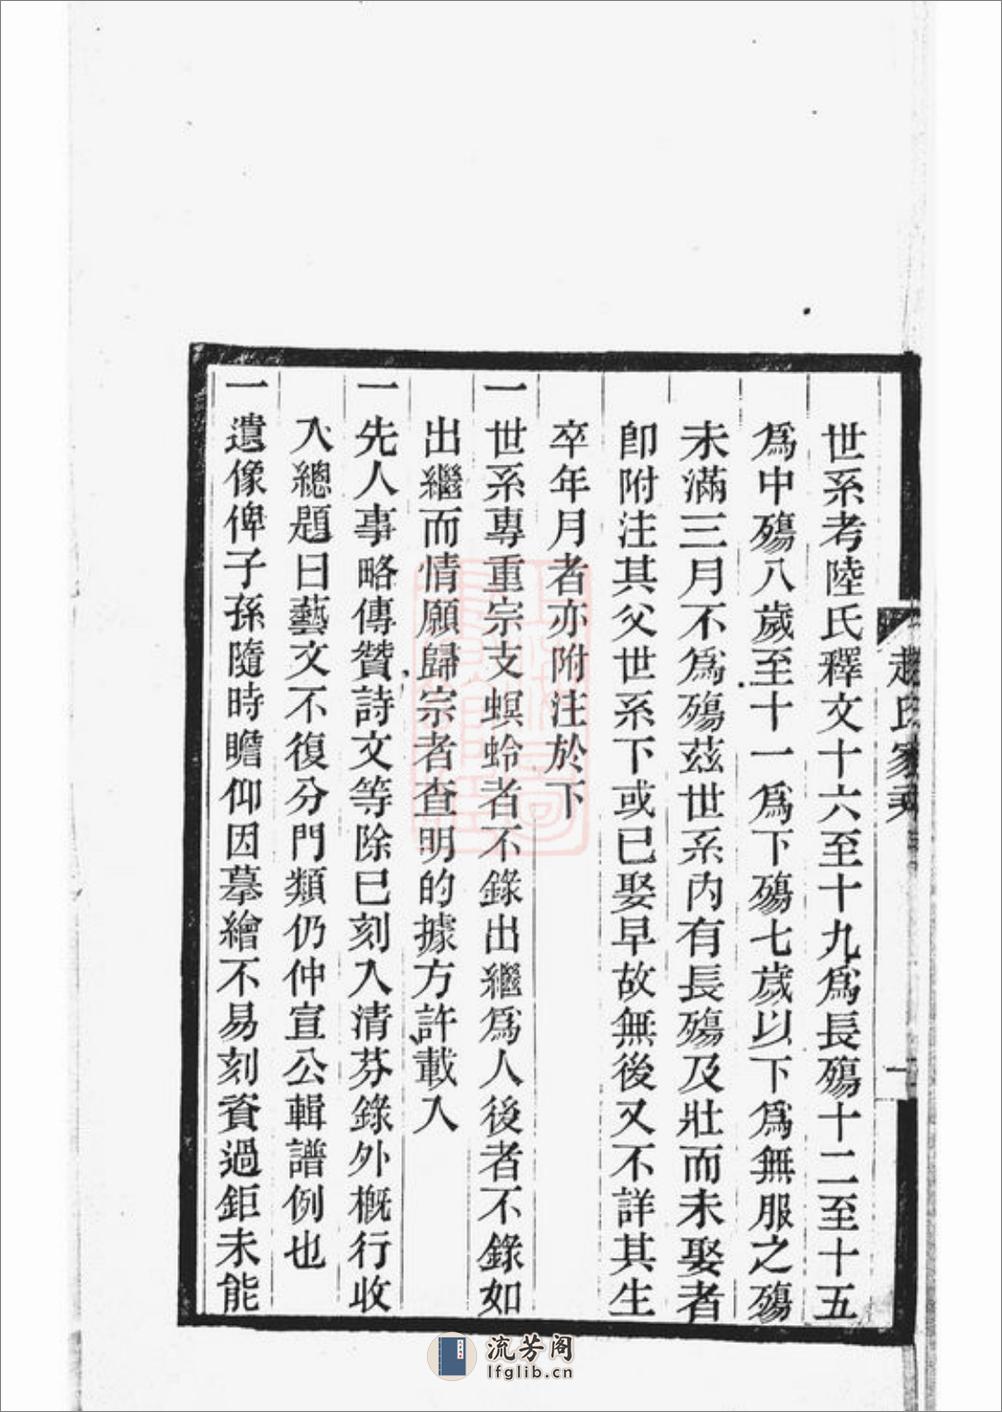 世系考陸氏釋文十六至十九爲長殤十二至十五
爲中殤八歲至十一爲下殤七歲以下爲無服之殤
未滿三月不爲殤茲世系內有長殤及壯而未娶者
卽附注其父世系下或已娶早故無後又不詳其生
卒年月者亦附注於下
一世系專重宗支螟蛉者不錄出繼爲人後者不錄如
出繼而情願歸宗者查明的據方許載入
一先人事略傳贊詩文等除已刻入清芬錄外概行收
入總題曰藝文不復分門類仍仲宣公輯譜例也
一遺像俾子孫隨時瞻仰因摹繪不易刻資過鉅未能
趙氏家乘
一
流芳阁
lfglib.cn